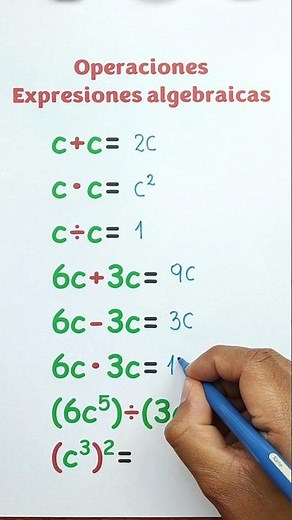 Operaciones
Expresiones algebraicas
c+c= 2c
c·c= c²
c÷c= 1
6c+3c= 9c
6c-3c= 3c
6c·3c= 1
(6c⁵)÷(3
(c³)²=